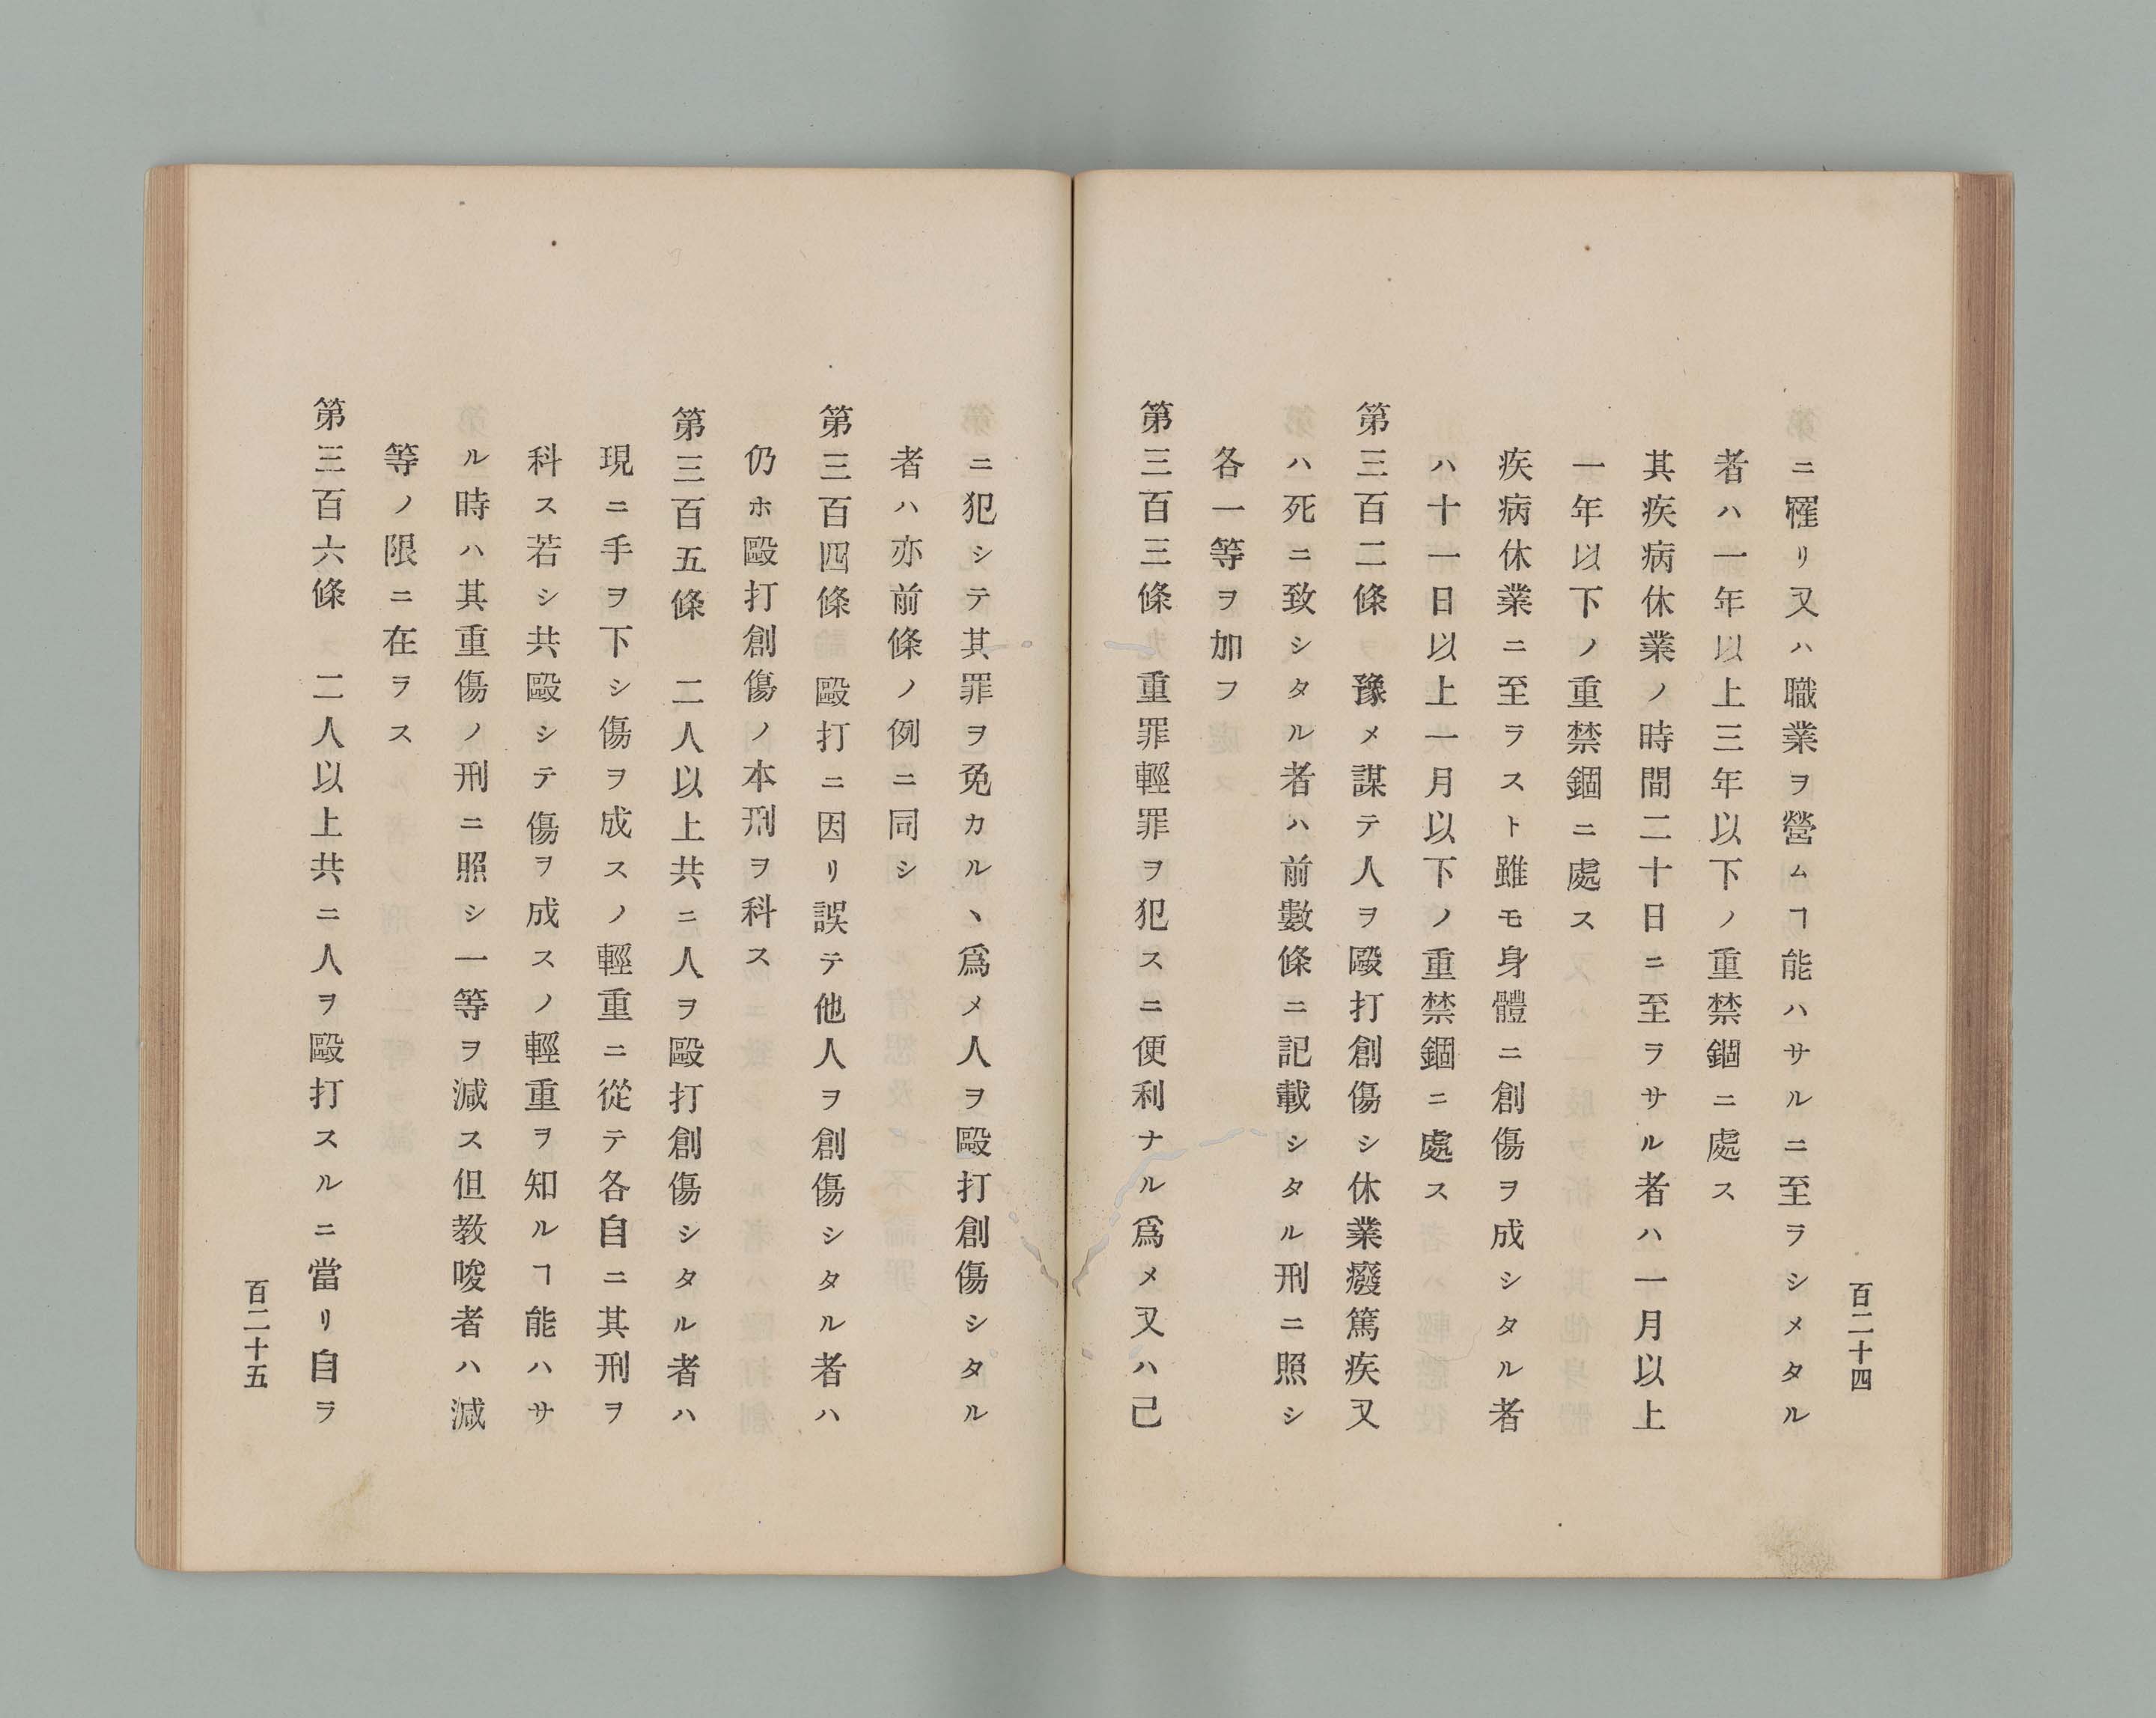 百二十四
ニ罹リ又ハ職業ヲ營ムヿ能ハサルニ至ラシメタル
者ハ一年以上三年以下ノ重禁錮ニ處ス
其疾病休業ノ時間二十日ニ至ラサル者ハ一月以上
一年以下ノ重禁錮ニ處ス
疾病休業ニ至ラスト雖モ身體ニ創傷ヲ成シタル者
ハ十一日以上一月以下ノ重禁錮ニ處ス
第三百二條　豫メ謀テ人ヲ毆打創傷シ休業癈篤疾又
ハ死ニ致シタル者ハ前數條ニ記載シタル刑ニ照シ
各一等ヲ加フ
第三百三條　重罪輕罪ヲ犯スニ便利ナル爲メ又ハ己
ニ犯シテ其罪ヲ免カルヽ爲メ人ヲ毆打創傷シタル
者ハ亦前條ノ例ニ同シ
第三百四條　毆打ニ因リ誤テ他人ヲ創傷シタル者ハ
仍ホ毆打創傷ノ本刑ヲ科ス
第三百五條　二人以上共ニ人ヲ毆打創傷シタル者ハ
現ニ手ヲ下シ傷ヲ成スノ輕重ニ從テ各自ニ其刑ヲ
科ス若シ共毆シテ傷ヲ成スノ輕重ヲ知ルヿ能ハサ
ル時ハ其重傷ノ刑ニ照シ一等ヲ減ス但教唆者ハ減
等ノ限ニ在ラス
第三百六條　二人以上共ニ人ヲ毆打スルニ當リ自ラ
百二十五